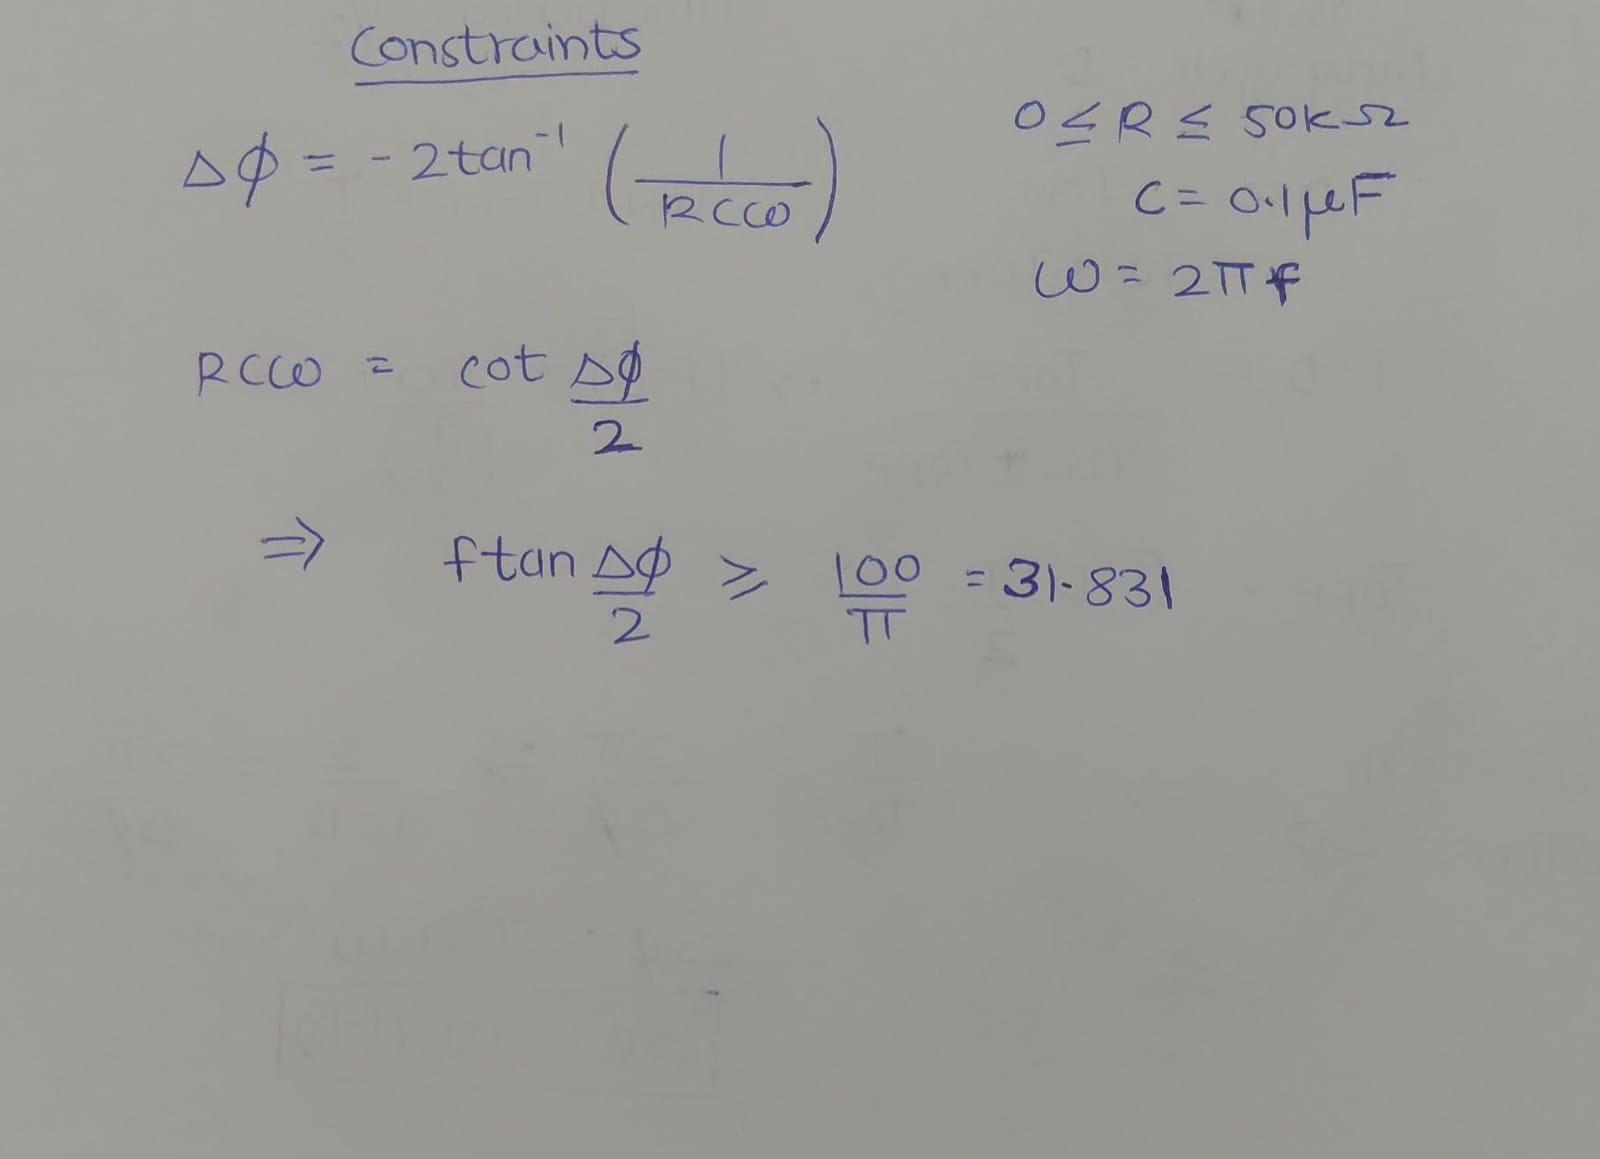 Constraints
Δϕ = -2tan⁻¹ (1/RCω)
0 ≤ R ≤ 50KΩ
C = 0.1μF
ω = 2πf
RCω = cot Δϕ/2
⇒ f tan Δϕ/2 ≥ 100/π = 31.831